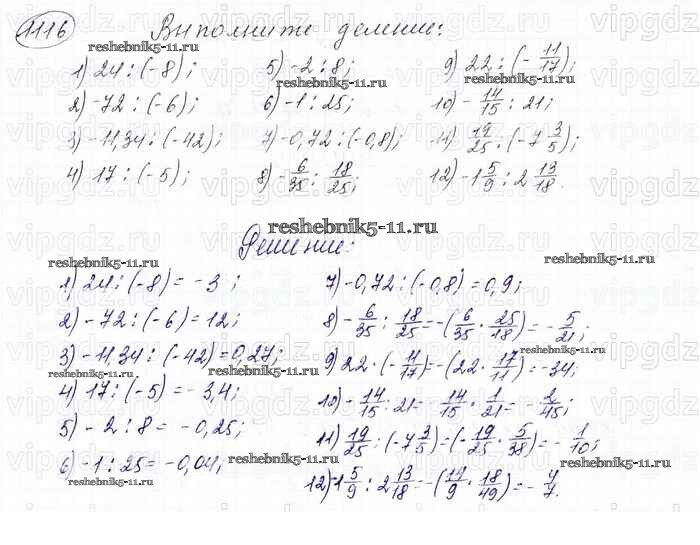 1116 Выполните деление:
1) 24 : (-8);
2) -72 : (-6);
3) -11,34 : (-42);
4) 17 : (-5);
5) -2 : 8;
6) -1 : 25;
7) -0,72 : (-0,8);
8) -6/35 : 18/25;
9) 22 : (-11/17);
10) -14/15 : 21;
11) 19/25 : (-7 3/5);
12) -1 5/9 : 2 13/18.
Решение:
1) 24 : (-8) = -3;
2) -72 : (-6) = 12;
3) -11,34 : (-42) = 0,27;
4) 17 : (-5) = -3,4;
5) -2 : 8 = -0,25;
6) -1 : 25 = -0,04;
7) -0,72 : (-0,8) = 0,9;
8) -6/35 : 18/25 = -(6/35 · 25/18) = -5/21;
9) 22 · (-11/17) = -(22 · 17/11) = -34;
10) -14/15 : 21 = -14/15 · 1/21 = -2/45;
11) 19/25 : (-7 3/5) = (-19/25 · 5/38) = -1/10;
12) -1 5/9 : 2 13/18 = -(14/9 · 18/49) = -4/7.
reshebnik5-11.ru
reshebnik5-11.ru
reshebnik5-11.ru
reshebnik5-11.ru
reshebnik5-11.ru
reshebnik5-11.ru
reshebnik5-11.ru
reshebnik5-11.ru
reshebnik5-11.ru
reshebnik5-11.ru
reshebnik5-11.ru
vipgdz.ru